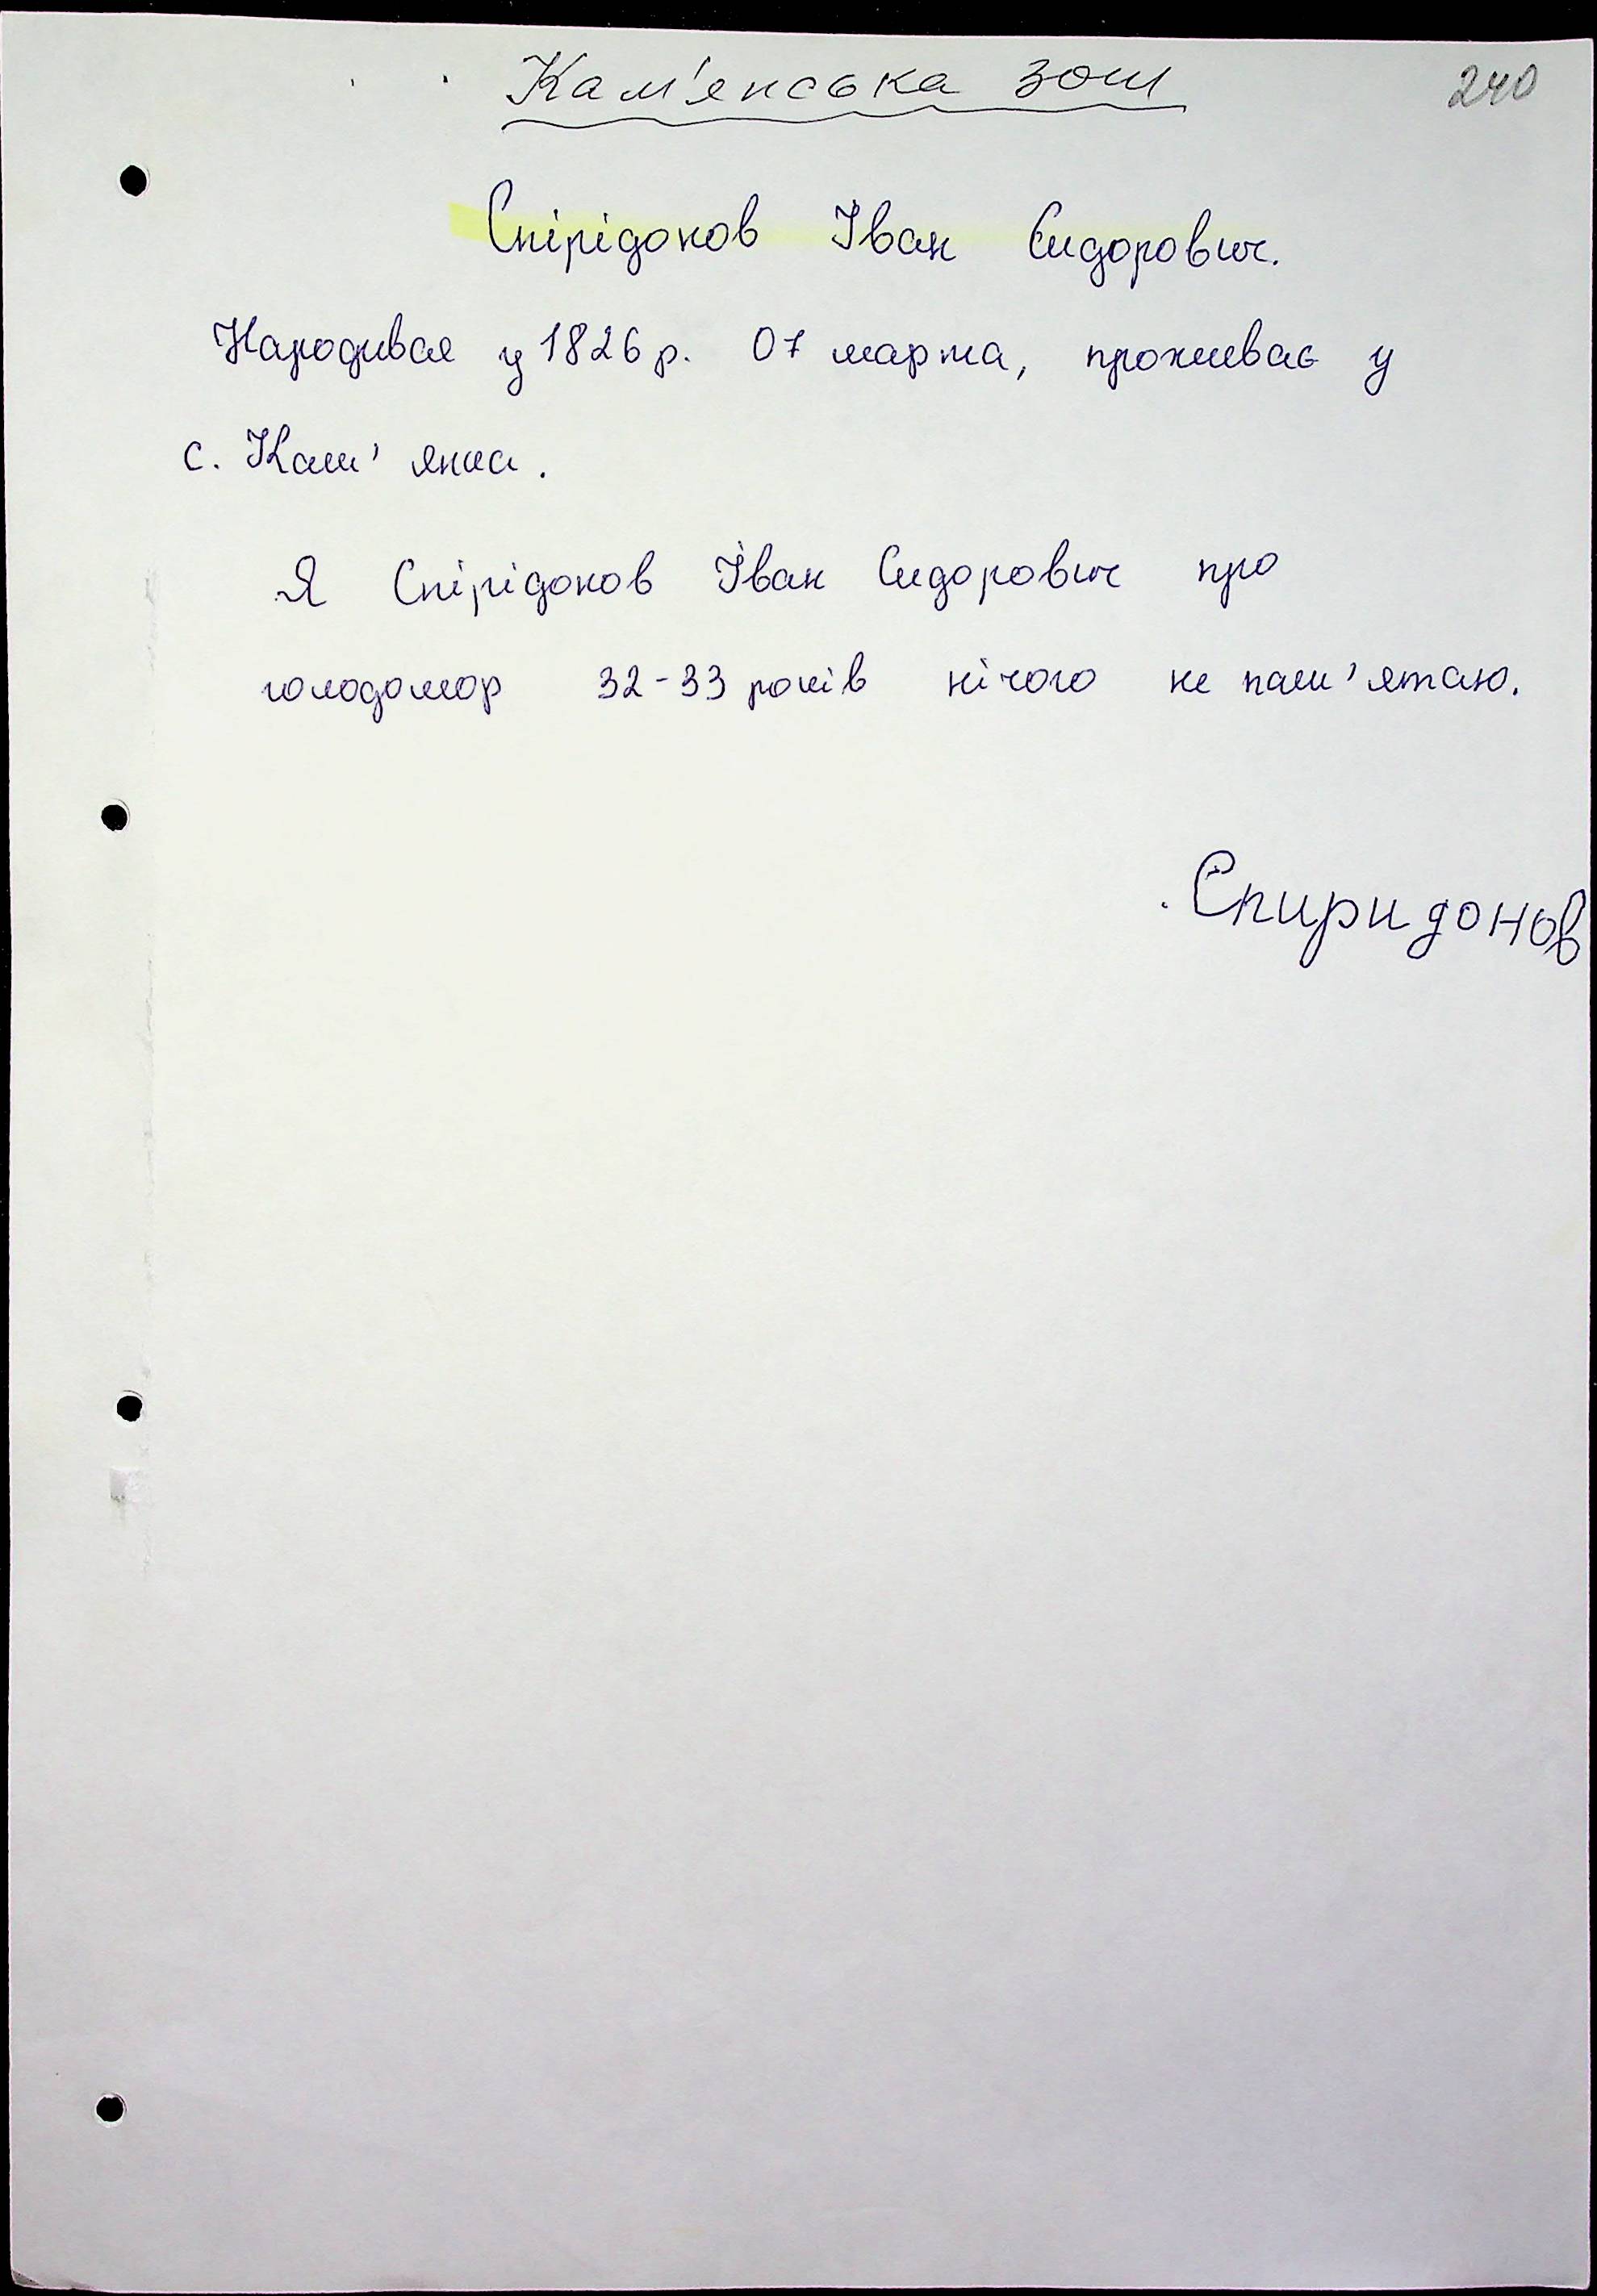 Кам'янська зош
240
Спірідонов Іван Сидорович.
Народився у 1826 р. 07 марта, проживає у
с. Кам'янка.
Я Спірідонов Іван Сидорович про
голодомор 32-33 років нічого не пам'ятаю.
Спиридонов